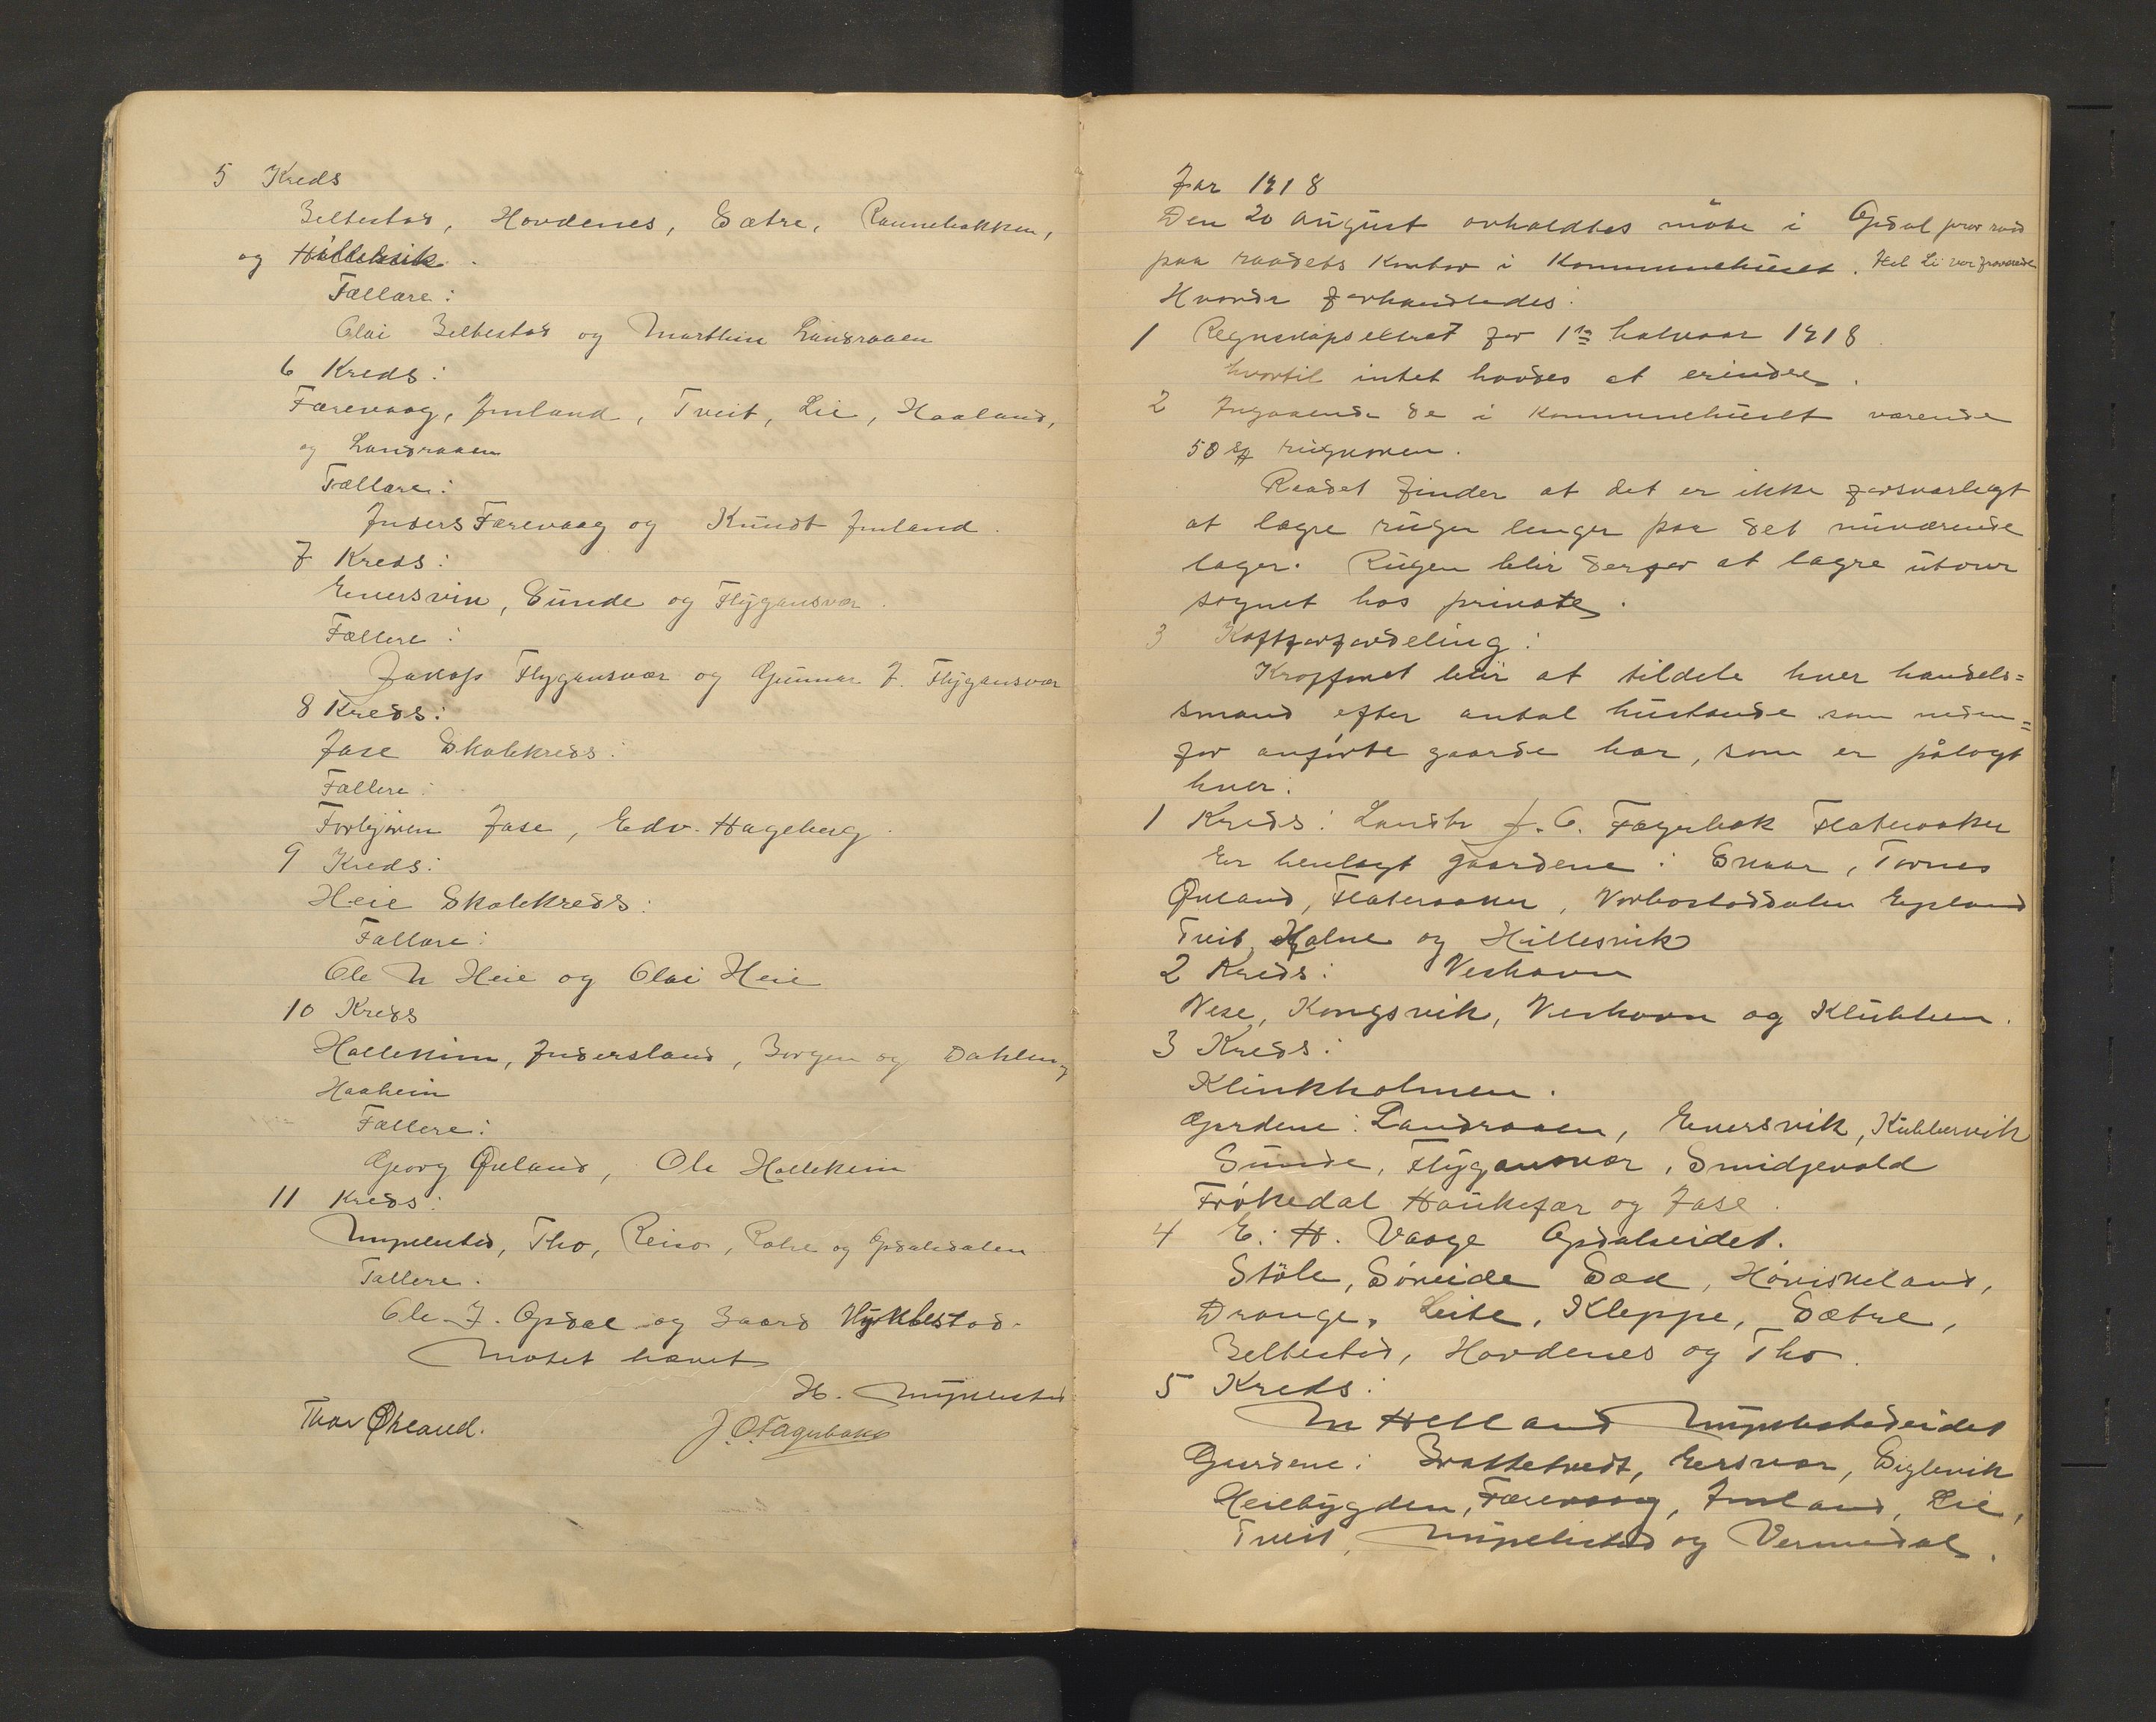 5 Kreds
Beltestad, Hovdenes, Sætre, Rannebakken,
og Hillesvik.
Tællere:
Olai Beltestad og Marthin Landraaen
6 Kreds:
Færevaag, Imland, Tveit, Lie, Haaland,
og Landraaen
Tællere:
Anders Færevaag og Knudt Imland.
7 Kreds:
Enersvik, Sunde og Flygansvær.
Tællere:
Jakop Flygansvær og Gunnar J. Flygansvær
8 Kreds:
Fase Skolekreds:
Tællere:
Torbjøren Fase, Edv. Hageberg.
9 Kreds:
Heie Skolekreds:
Tællere:
Ole N Heie og Olai Heie
10 Kreds
Hallekim, Andersland, Borgen og Dahlen og
Haaheim
Tællere:
Georg Økland, Ole Hallekim
11 Kreds:
Myklestad, Tho, Reisa, og Opdalsdalen
Tællere.
Ole J. Opdal og Baard Myklestad.
Møtet hævet
H. Myklestad
Thor Økland. J. O. Fagerbakk
Aar 1918
Den 20 august avholdtes møte i Opdal prov. raad
paa raadets kontor i Kommunehuset. Hel. Li var fraværende
Hvorda forhandledes:
1 Regnskapsextrat for 1ste halvaar 1918.
hvortil intet havdes at erindre.
2 Angaaende de i kommunehuset værende
50 sk rugkorn.
Raadet finder at det er ikke forsvarligt
at lagre rugen lenger paa det nuværende
lager. Rugen blir derfor at lagre utover
sognet hos private.
3
blir at tildele hver handels=
smand efter antal hustande som neden=
for anførte gaarde har, som er pålagt
hver:
1 Kreds: Landh J. O. Fagerbak Flateraaker
Er henlagt gaardene: Enaar, Tornes
Økland, Flateraaker, Vorbostaddalen Epland
Tveit, Kalne og Hillesvik
2 Kreds: Veshavn
Vese, Kongsvik, Veshavn og Klubben.
3 Kreds:
Klinkholmen.
Gardene: Landraaen, Enersvik, Kubbervik
Sunde, Flygansvær, Smidjevold
Frøkedal Haukefær og Fase.
4 E. H. Vaage Opdalseidet.
Støle, Søreide Sæd, Høviskeland,
Drange, Leite, Kleppe, Sætre,
Beltestad, Hovdenes og Tho.
5 Kreds:
M Helland Myklestadeidet
Gardene: Brattetvedt, Eersvær, Siglevik
Heiebygden, Færevaag, Imland, Lie,
Tveit, Myklestad og Vermedal.